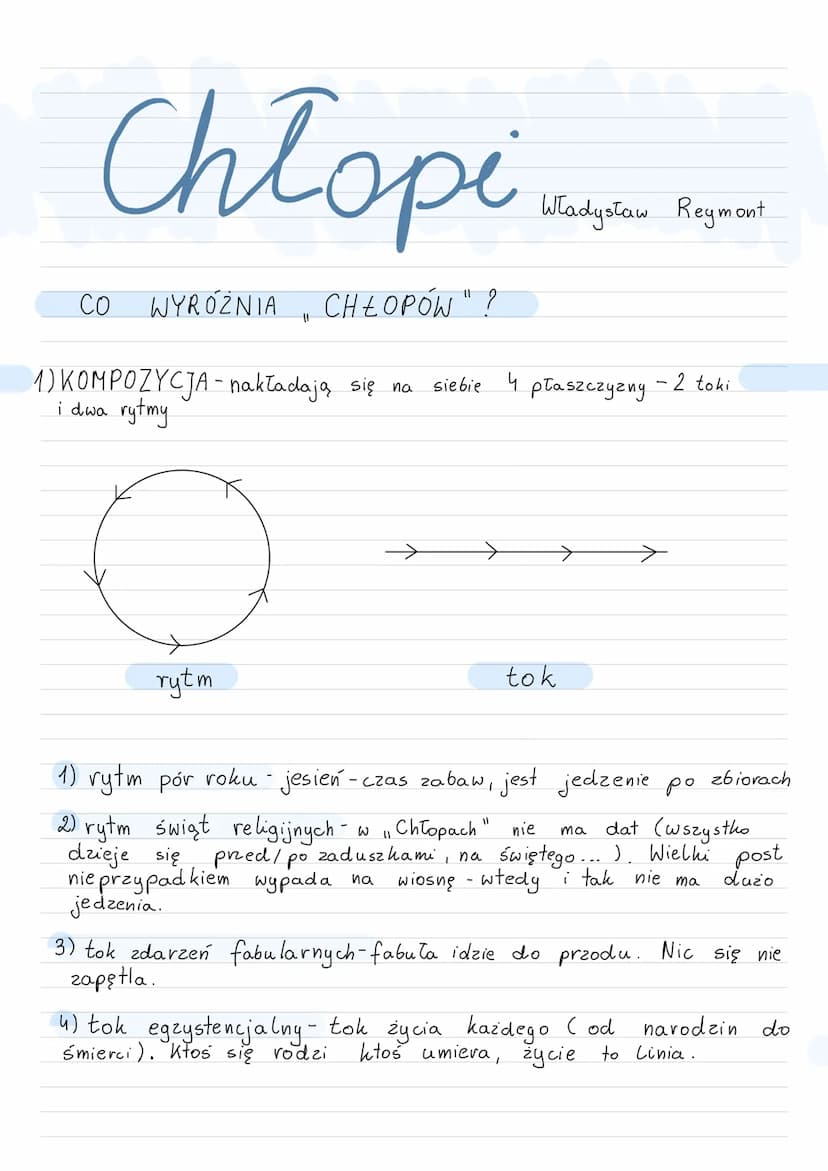 Chłopi
Władysław Reymont
CO WYRÓŻNIA „CHŁOPÓW"?
1) KOMPOZYCJA - nakładają się na siebie 4 płaszczyzny - 2 toki
i dwa rytmy
rytm
tok
1) rytm pór roku - jesień - czas zabaw, jest jedzenie po zbiorach
2) rytm świąt religijnych - w „Chłopach" nie ma dat (wszystko
dzieje się przed/po zaduszkami, na świętego...). Wielki post
nieprzypadkiem wypada na wiosnę - wtedy i tak nie ma dużo
jedzenia.
3) tok zdarzeń fabularnych - fabuła idzie do przodu. Nic się nie
zapętla.
4) tok egzystencjalny - tok życia każdego (od narodzin do
śmierci). Ktoś się rodzi ktoś umiera, życie to linia.